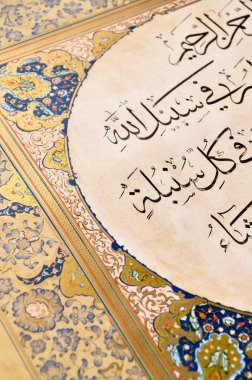 الرحيم
فِي سَبِيلِ اللَّهِ
فِي كُلِّ سُنْبُلَةٍ